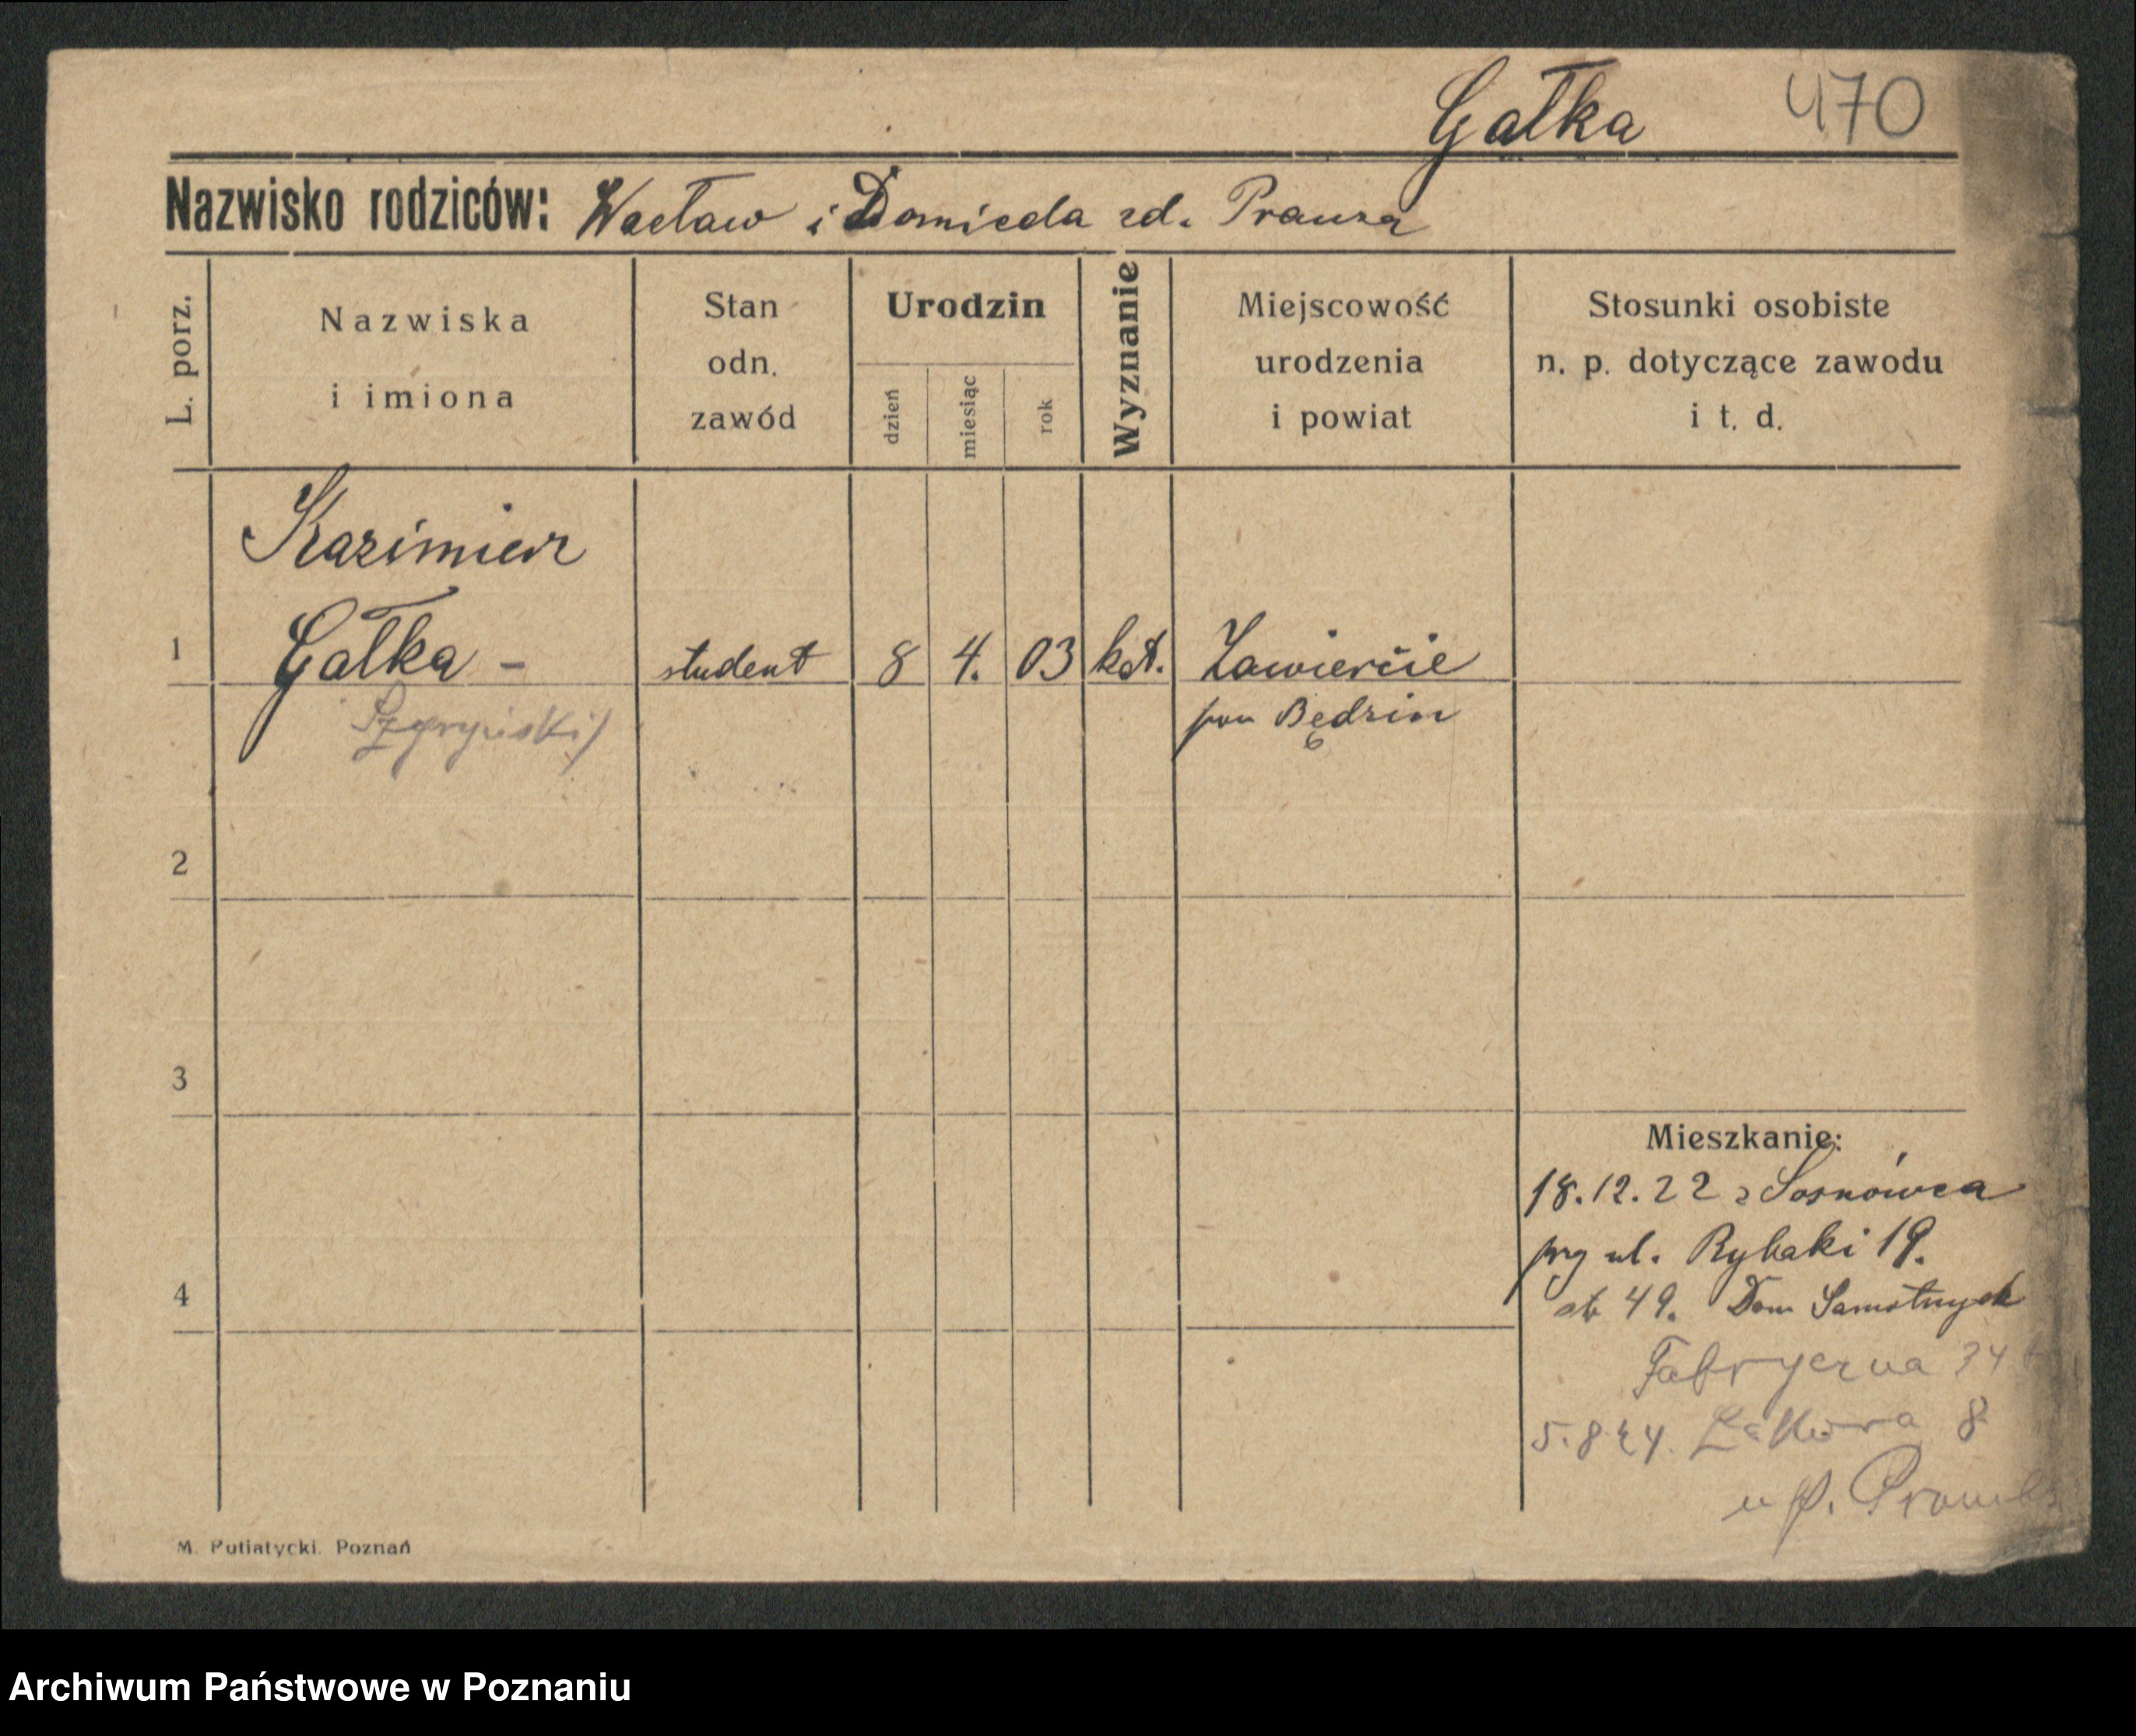 Gałka 470
Nazwisko rodziców: Wacław i Domicela zd.
L. porz.
Nazwiska
i imiona
Stan
odn.
zawód
Urodzin
dzień
miesiąc
rok
Wyznanie
Miejscowość
urodzenia
i powiat
Stosunki osobiste
n. p. dotyczące zawodu
i t. d.
Kazimierz
1 Gałka - student 8 4. 03 kat. Zawiercie
pow Będzin
2
3
Mieszkanie:
18.12.22 z Sosnówca
przy ul. Rybaki 19.
4
49. Dom Samotnych
Fabryczna 34
5.8 24. 8
u p.
M. Putiatycki. Poznań
Archiwum Państwowe w Poznaniu